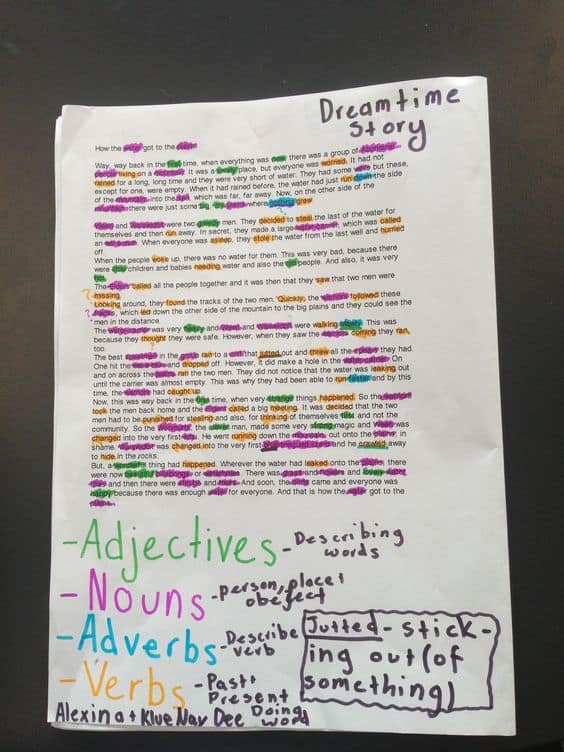 Dreamtime
Story
How the got to the
Way, way back in the first time, when everything was new there was a group of
people living on a It was a lovely place, but everyone was worried. It had not
rained for a long, long time and they were very short of water. They had some but these,
except for one, were empty. When it had rained before, the water had just run down the side
of the into the which was far, far away. Now, on the other side of the
there were just some big where nothing grew
and were two greedy men. They decided to steal the last of the water for
themselves and then run away. In secret, they made a large which was called
an When everyone was asleep, they stole the water from the last well and hurried
off.
When the people woke up, there was no water for them. This was very bad, because there
were little children and babies needing water and also the old people. And also, it was very
hot.
The called all the people together and it was then that they saw that two men were
missing.
Looking around, they found the tracks of the two men. Quickly, the followed these
which led down the other side of the mountain to the big plains and they could see the
men in the distance.
The was very heavy and and were walking slowly. This was
because they thought they were safe. However, when they saw the coming they ran,
too.
The best in the ran to a that jutted out and threw all the they had.
One hit the and dropped off. However, it did make a hole in the On
and on across the ran the two men. They did not notice that the water was leaking out
until the carrier was almost empty. This was why they had been able to run faster and by this
time, the had caught up.
Now, this was way back in the first time, when very strange things happened. So the
took the men back home and the called a big meeting. It was decided that the two
men had to be punished for stealing and also, for thinking of themselves first and not the
community. So the the man, made some very strong magic and was
changed into the very first He went running down the out onto the in
shame. was changed into the very first and he crawled away
to hide in the rocks.
But, a wonderful thing had happened. Wherever the water had leaked onto the there
were now beautiful or There was and and
and then there were and And soon, the came and everyone was
happy because there was enough for everyone. And that is how the got to the
-Adjectives -Describing
words
-Nouns -person, place +
obefect
-Adverbs -Describe
verb
-Verbs -Past+
Present
Doing
word
Jutted - stick-
ing out (of
something)
Alexina + Klue Nay Dee